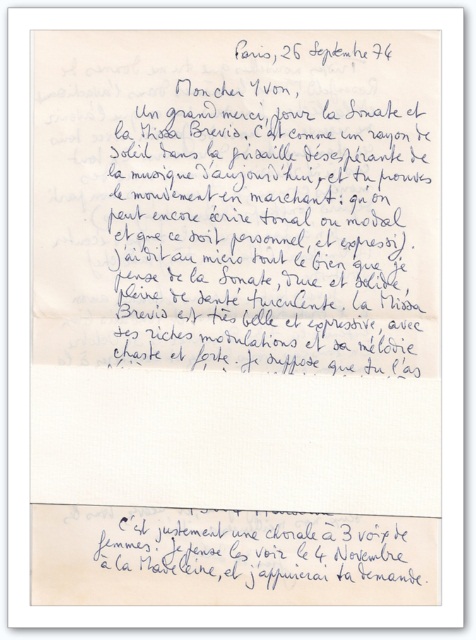 Paris, 26 Septembre 74
Mon cher Yvon,
Un grand merci pour la Sonate et
la Missa Brevis. C'est comme un rayon de
soleil dans la grisaille désespérante de
la musique d'aujourd'hui, et tu prouves
le mouvement en marchant : qu'on
peut encore écrire tonal ou modal
et que ce soit personnel, et expressif.
J'ai dit au micro tout le bien que je
pense de la Sonate, drue et solide,
pleine de santé turculente. La Missa
Brevis est très belle et expressive, avec
ses riches modulations et sa mélodie
chaste et forte. Je suppose que tu l'as
C'est justement une chorale à 3 voix de
femmes. Je pense les voir le 4 Novembre
à la Madeleine, et j'appuierai ta demande.